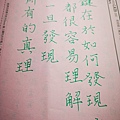 所有的真理
一旦發現
都很容易理解
鍵在於如何發現